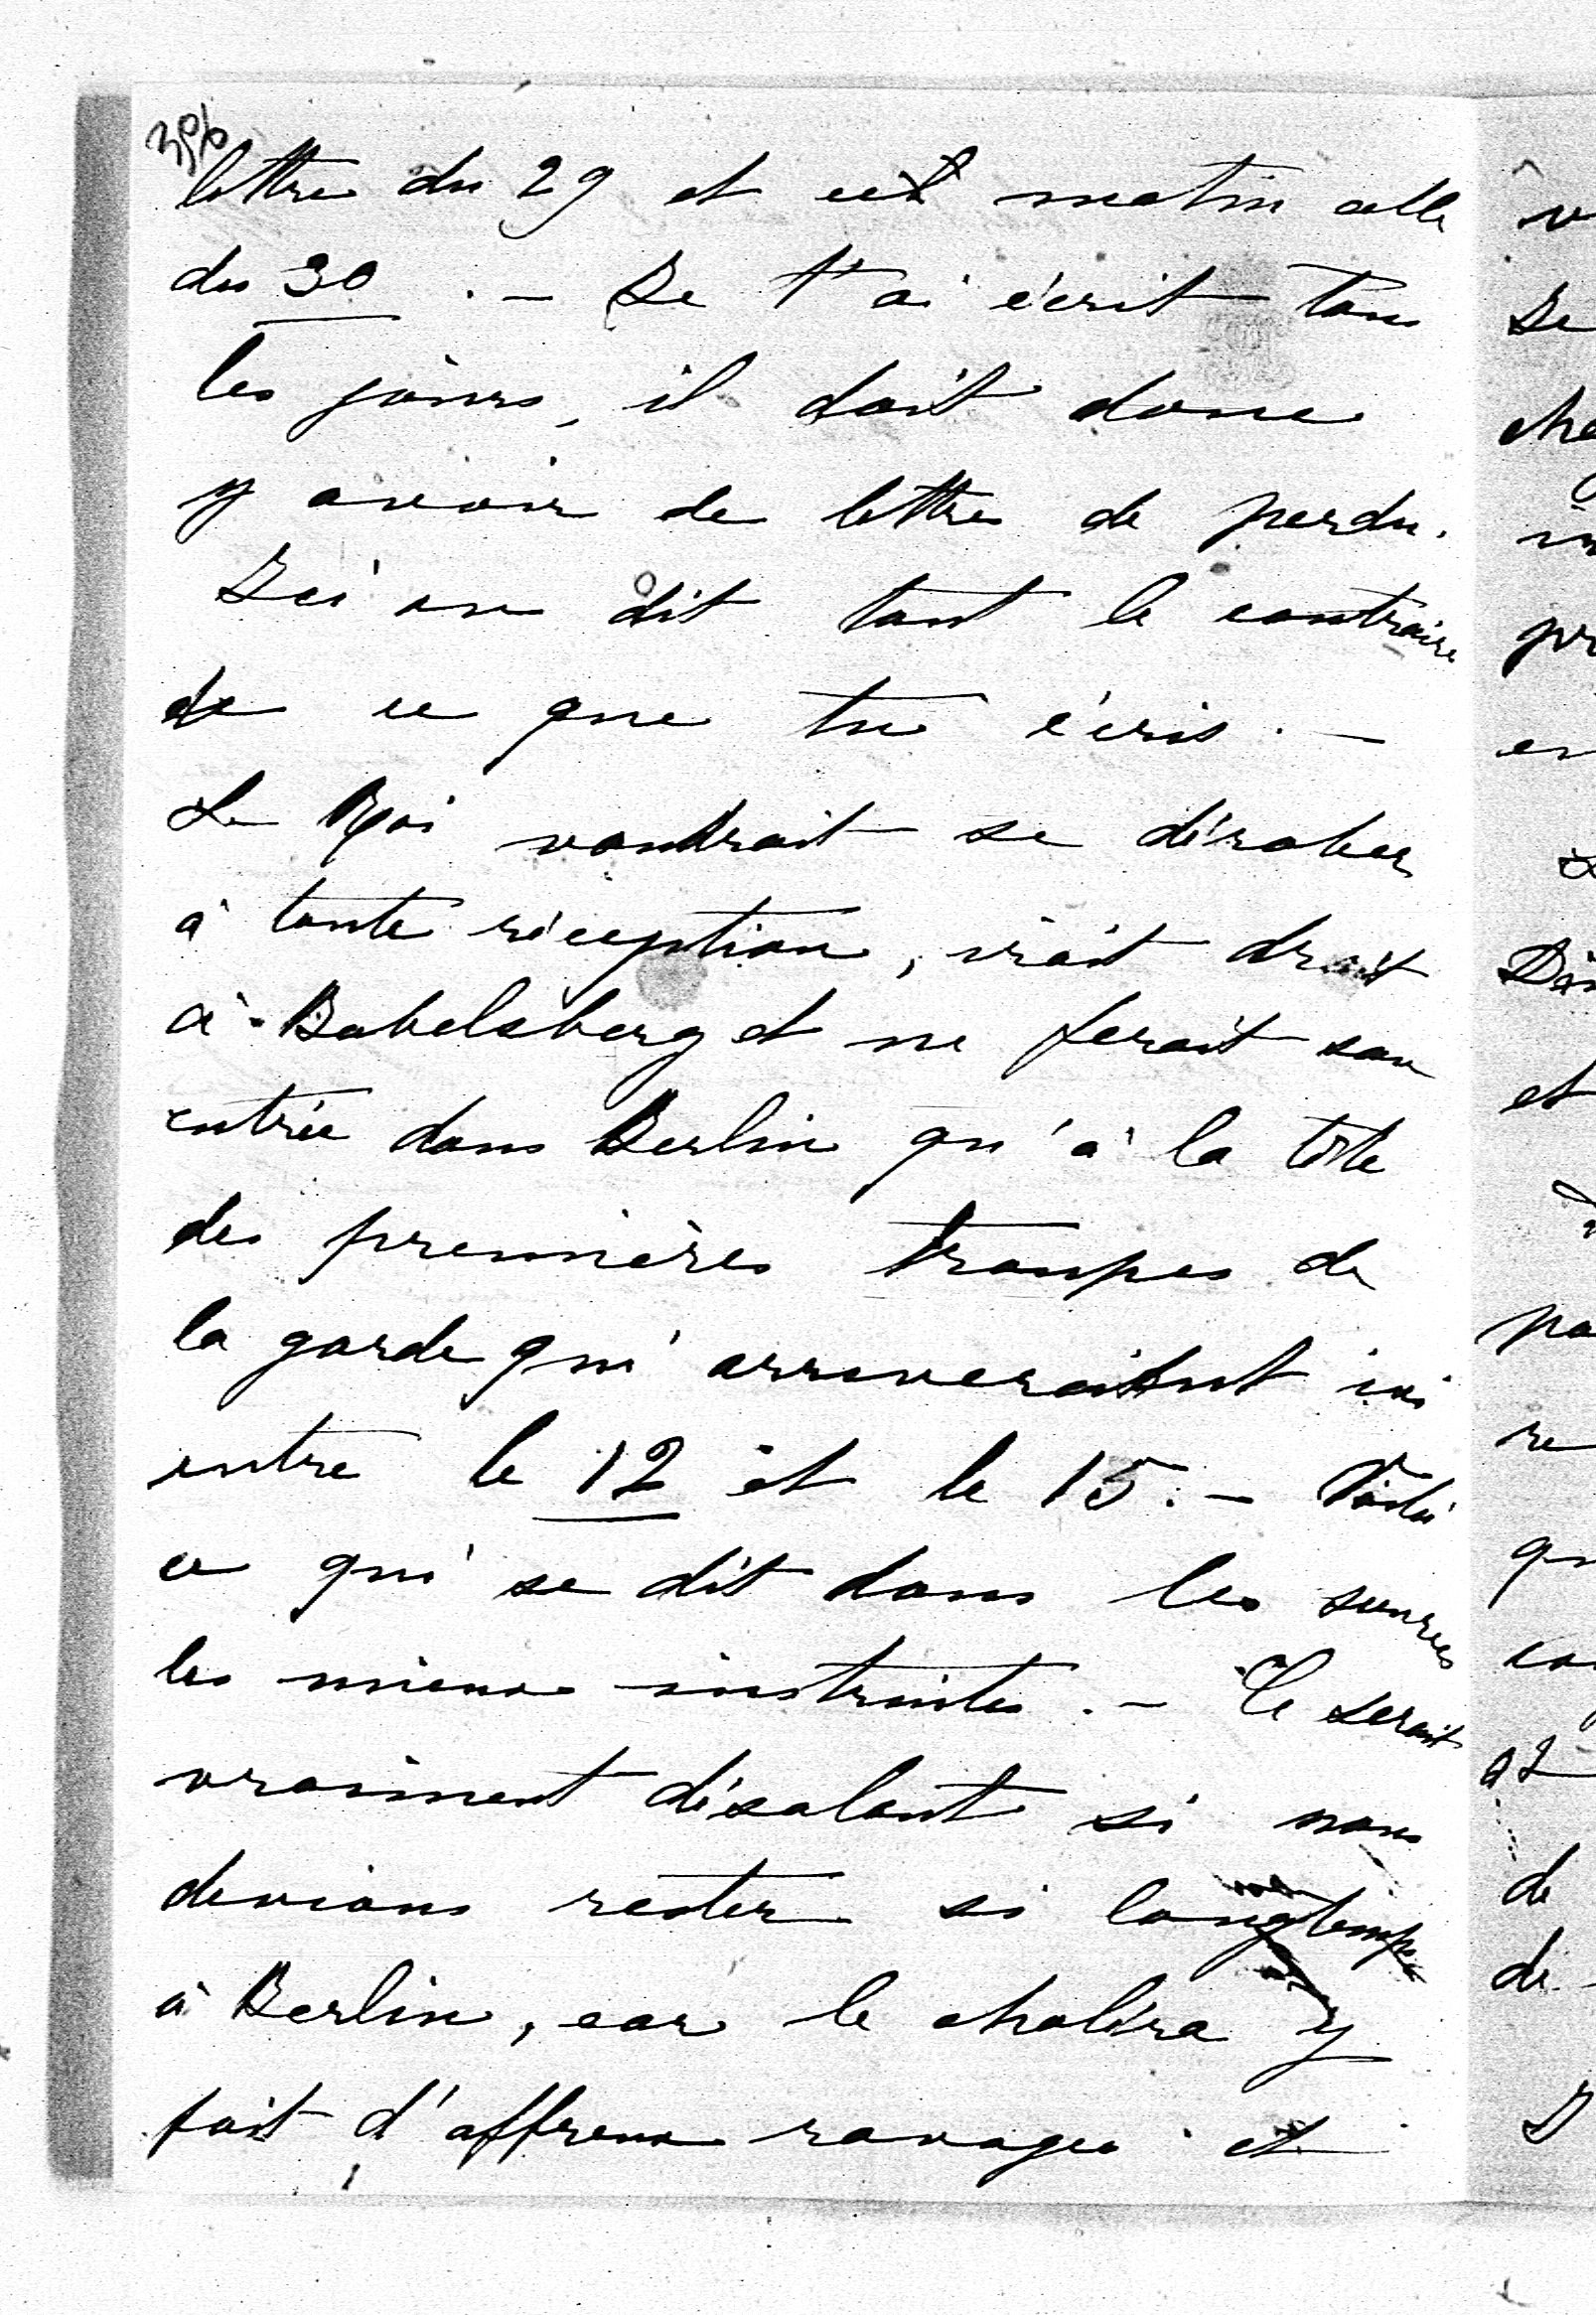 lettre du 29 et cet matin celle
du 30 . – Je t'ai écrit tous
les jours, il doit donc
y avoir de lettres de perdu.
Ici on dit tout le contraire
de ce que tu écris. –
Le Roi voudrait se dérober
à toute réception, irait droit
à Babelsberg et ne ferait son
entrée dans Berlin qu'à la tête
des premières troupes de
la garde qui arriveraient ici
entre le 12 et le 15. – Voilà
ce qui se dit dans les sources
les mieux instruites. – Ce serait
vraiment désolant si nous
devions rester si longtemps
à Berlin, car le choléra y
fait d'affreux ravages et